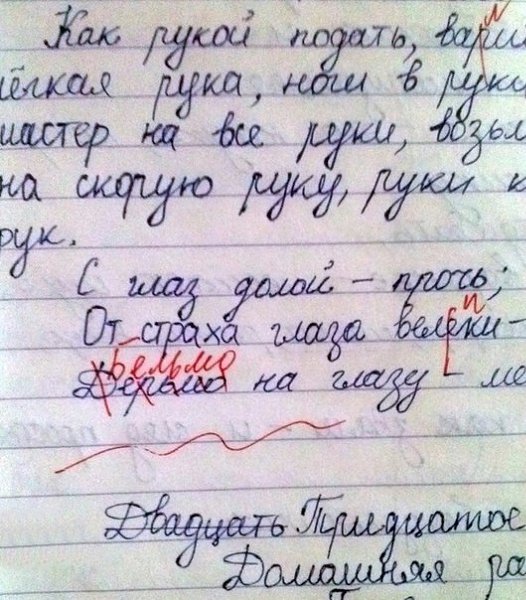 Как рукой подать, вари
лёгкая рука, ноги в руки
мастер на все руки, возьм
на скорую руку, руки к
рук.
С глаз долой - прочь;
и
От страха глаза велеки -
Бельмо
Дерьмо на глазу - ме
Двадцать Тридцатое
Домашняя ра